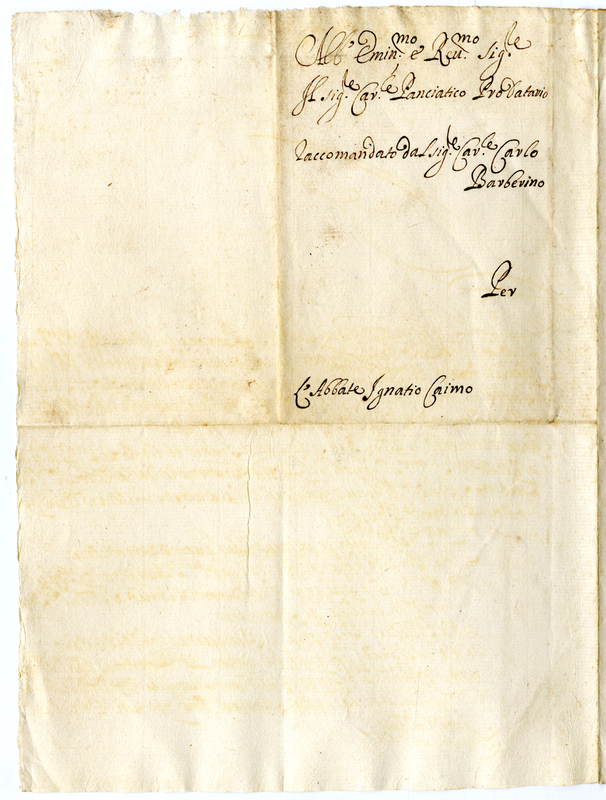 All' Emin.mo e Reu.mo Sig.le
Il Sig.le Car.le Panciatico ProDatario
Raccomandato dal Sig.le Car.le Carlo
Barberino
Per
L'Abbate Ignatio Caimo